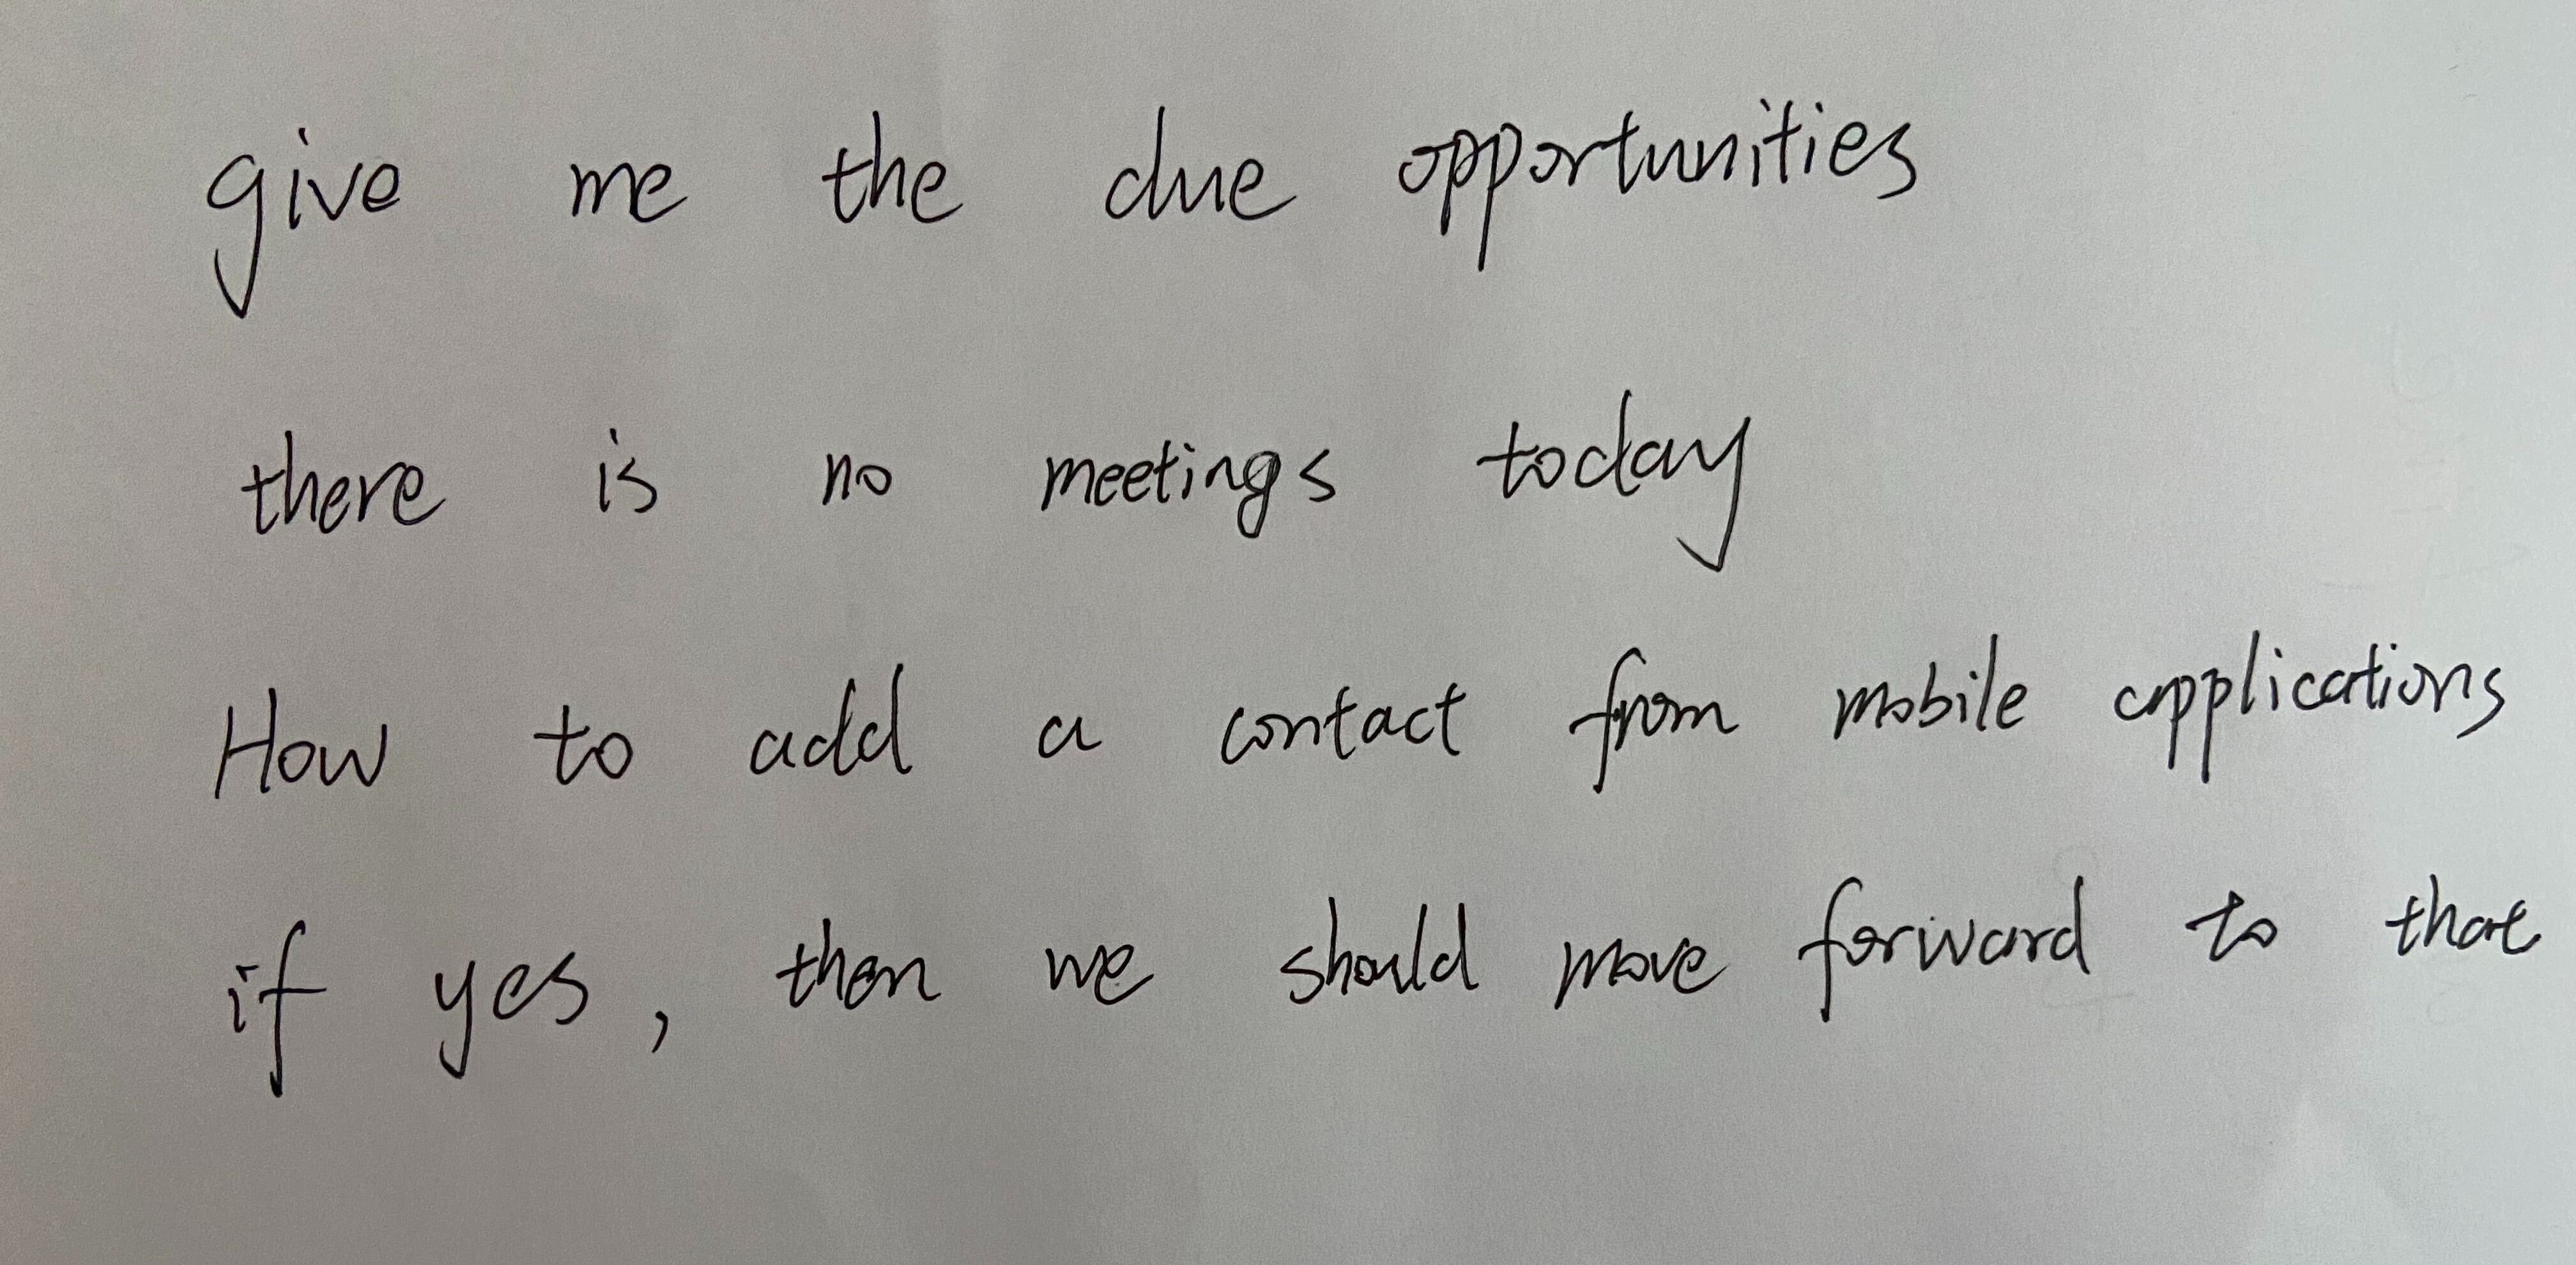 give me the due opportunities
there is no meetings today
How to add a contact from mobile applications
if yes, then we should move forward to that